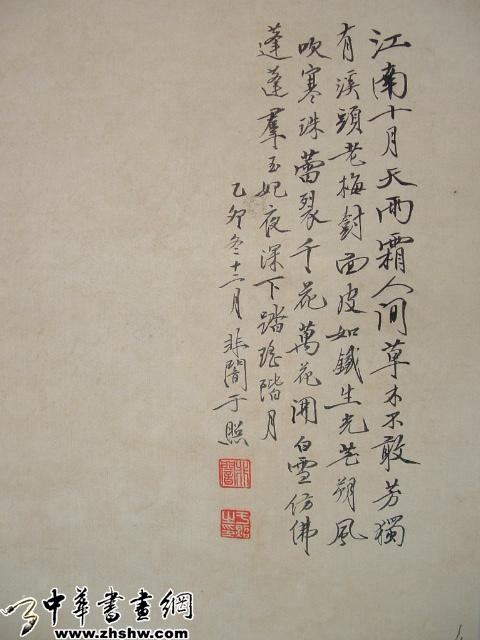 江南十月天雨霜人间草木不敢芳獨
有溪頭老梅對面皮如鐵生光芒朔風
吹寒珠蕾裂千花萬花開白雪仿佛
蓬蓬羣玉妃夜深下踏瑤階月
乙卯冬十二月非闇于照
非闇
于照之印
中華書畫網
www.zhshw.com